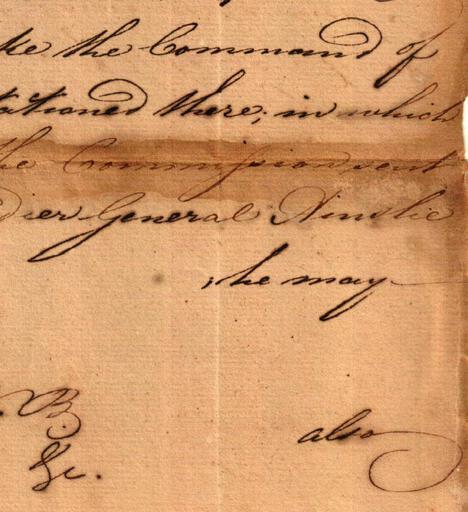 ke the Command of
tationed there; in which
he Commission sent
dier General Ainslie
, he may
. B.
also
&c.